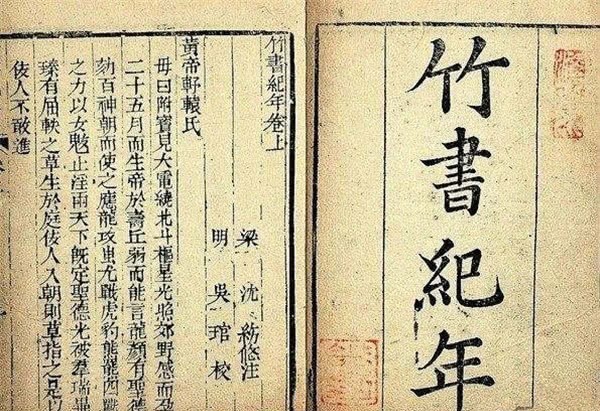 竹書紀年
竹書紀年卷上
梁 沈約注
明 吳琯校
黃帝軒轅氏
母曰附寶見大電繞北斗樞星光照郊野感而孕
二十五月而生帝於壽丘弱而能言龍顏有聖德
劾百神朝而使之應龍攻蚩尤戰虎豹熊羆四獸
之力以女魃止淫雨天下既定聖德光被羣瑞畢
臻有屈軼之草生於庭佞人入朝則草指之是以
佞人不敢進